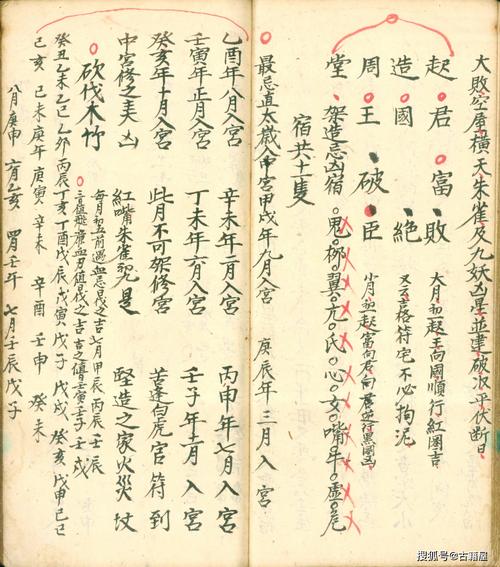 大敗空屋橫天朱雀及九妖凶星並建破次平伏斷日
起君富敗
造國絕
周王破臣
大月初一起王向國順行紅圈吉
又云合格符宅不必拘泥
小月初一起富向君向
堂架造忌凶宿鬼柳翼亢氐心女嘴斗虛危
宿共十一隻
最忌直太歲入中宮甲戌年九月入宮 庚辰年三月入宮
乙酉年八月入宮 辛未年二月入宮 丙申年七月入宮
壬寅年正月入宮 丁未年六月入宮 壬子年十一月入宮
癸亥年十月入宮 此月不可架修宮 苦逢白虎官符到
中宮修之主凶 紅嘴朱雀兇是 堅造之家火災坟
砍伐木竹
每月初五前遇血忌伐之吉 七月甲辰 丙辰 壬辰
癸丑 乙未 乙巳 乙卯 丙辰 丁亥 丁酉 戊辰 戊寅 戊子 戊戌 癸亥 戊申 己巳
己亥 己未 庚午 庚寅 辛未 辛酉 壬申 癸未
八月庚申 六月乙亥 四月壬午 七月壬辰 戊子
搜狐号@古籍屋